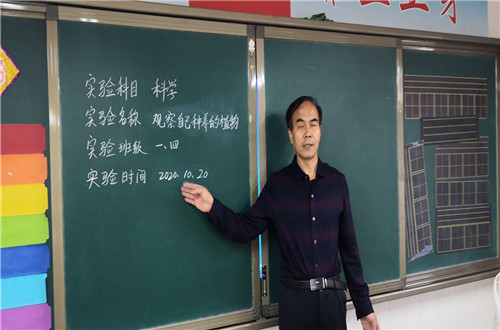 实验科目 科学
实验名称 观察自己种养的植物
实验班级 一、四
实验时间 2020.10.20